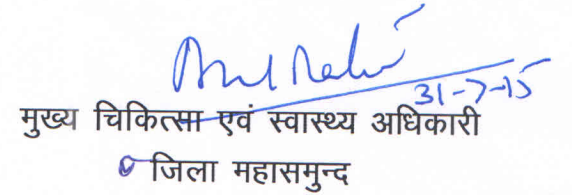 31-7-15
मुख्य चिकित्सा एवं स्वास्थ्य अधिकारी
जिला महासमुन्द